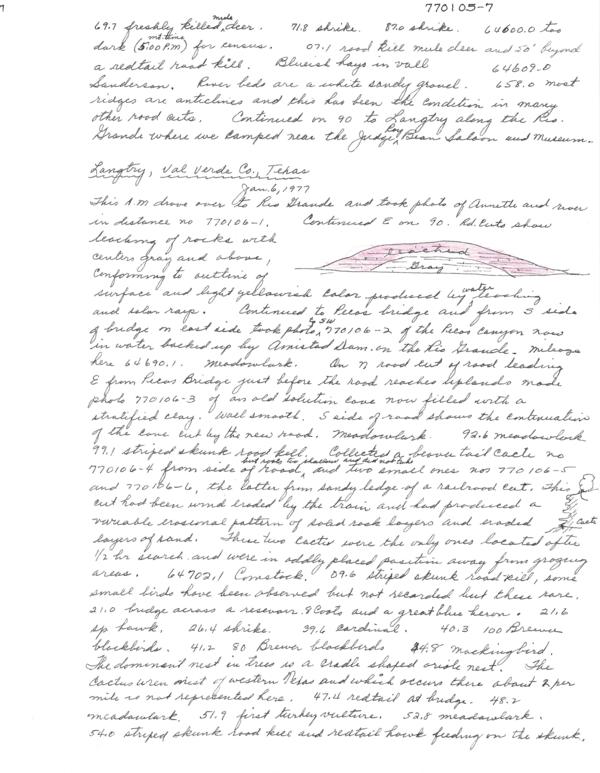 770105-7
69.7 freshly killed mule deer. 71.8 shrike. 87.0 shrike. 64600.0 too
dark (5:00 P.M mt. time) for census. 07.1 road kill mule deer and 20' beyond
a redtail road kill. Blueish hays in vall 64609.0
Sanderson. River beds are a white sandy gravel. 658.0 most
ridges are anticlines and this has been the condition in many
other road cuts. Continued on 90 to Langtry along the Rio
Grande where we camped near the Judge Roy Bean Saloon and Museum.
Langtry, Val Verde Co., Texas
Jan. 6, 1977
This A.M drove over to Rio Grande and took photo of Annette and river
in distance no 770106-1. Continued E on 90. Rd. Cuts show
leaching of rocks with
centers gray and above,
conforming to outline of
leached
Gray
surface and light yellowish color produced by water leaching
and solar rays. Continued to Pecos bridge and from S side
of bridge on east side took photo 770106-2 of the Pecos Canyon now
in water backed up by Amistad Dam on the Rio Grande. Mileage
here 64690.1. Meadowlark. On N road cut of road leading
E from Pecos Bridge just before the road reaches uplands made
photo 770106-3 of an old solution cave now filled with a
stratified clay. Wall smooth. S side of road shows the continuation
of the cave cut by the new road. Meadowlark. 92.6 meadowlark
99.1 striped skunk road kill. Collected a beaver tail cacte no
770106-4 from side of road, and two small ones nos 770106-5
and 770106-6, the latter from sandy ledge of a railroad cut. This
cut had been wind eroded by the train and had produced a
variable erosional pattern of solid rock layers and eroded
cacte
layers of sand. These two cacte were the only ones located after
1/2 hr search and were in oddly placed position away from grazing
areas. 64702.1 Comstock. 09.6 striped skunk road kill, some
small birds have been observed but not recorded but these rare.
21.0 bridge across a resevoir. 9 Coots and a great blue heron. 21.6
sp hawk. 26.4 shrike. 39.6 cardinal. 40.3 100 Brewer
blackbirds. 41.2 80 Brewer blackbirds 44.8 mockingbird.
The dominant nest in trees is a cradle shaped oriole nest. The
Cactus wren nest of western Texas and which occurs there about 2 per
mile is not represented here. 47.4 redtail at bridge. 48.2
meadowlark. 51.9 first turkey vulture. 52.8 meadowlark.
54.0 striped skunk road kill and redtail hawk feeding on the skunk.